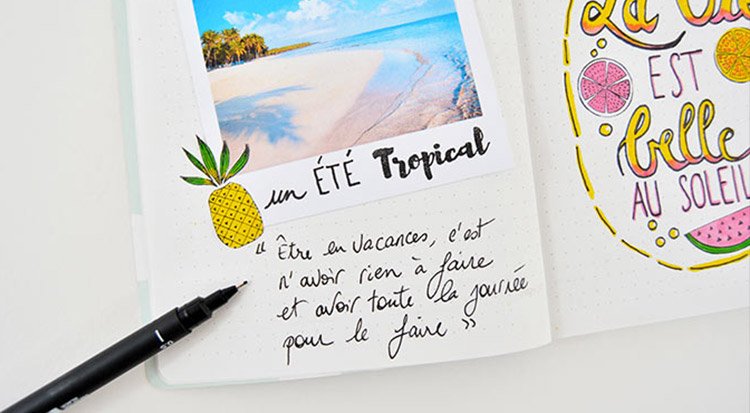 un ÉTÉ Tropical
“ Être en vacances, c'est
n'avoir rien à faire
et avoir toute la journée
pour le faire ”
La
EST
belle
AU SOLEIL